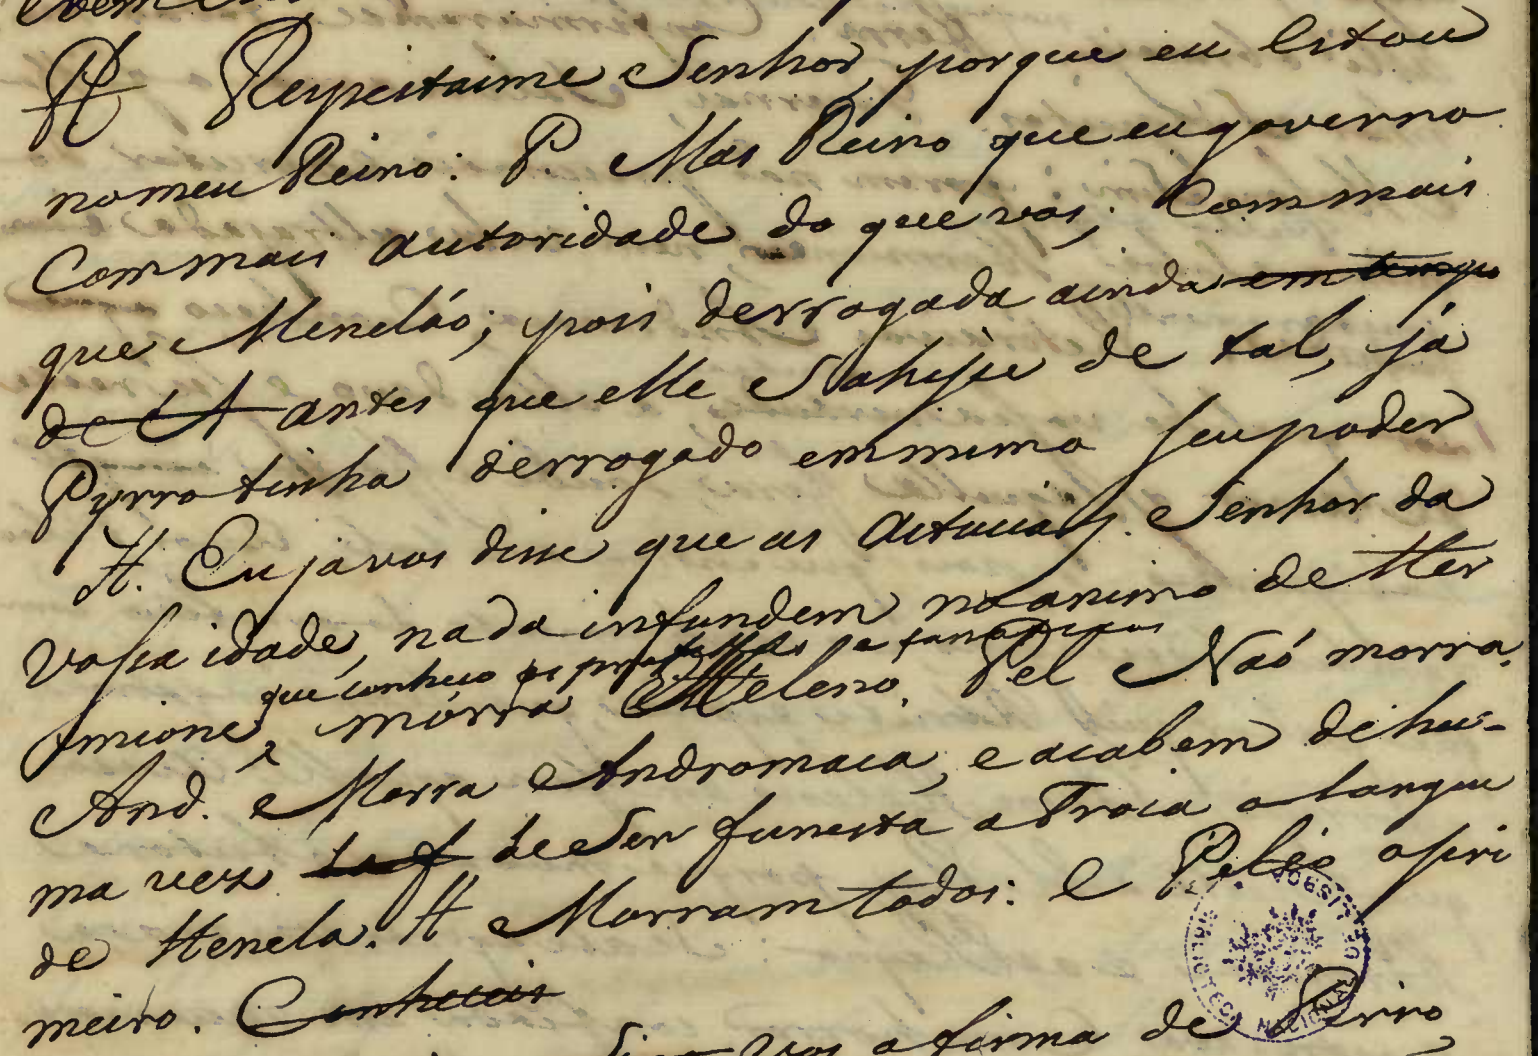 H Respeitaime Senhor, porque eu Estou
no meu Reino: P. Mas Reino que eu governo
Com mais autoridade do que vos; Com mais
que Meneláo; pois derrogada ainda em tempo
de A antes que elle Sahise de tal, já
Pyrro tinha derrogado em mimo seu poder
H. Eu ja vos disse que as astucias Senhor da
vossa idade, nada infundem no animo de Her
que conheco os
mione, morra Heleno. Pel Naó morra.
And. e Morra Andromaca, e acabem de hu-
ma vez de Ser funesta a Troia o Sangue
de Henela. H Morram todos: e Peleo o pri
meiro. Conheceis
vos a firma de Pirro
BIBLIOTECA NACIONAL DE LISBOA